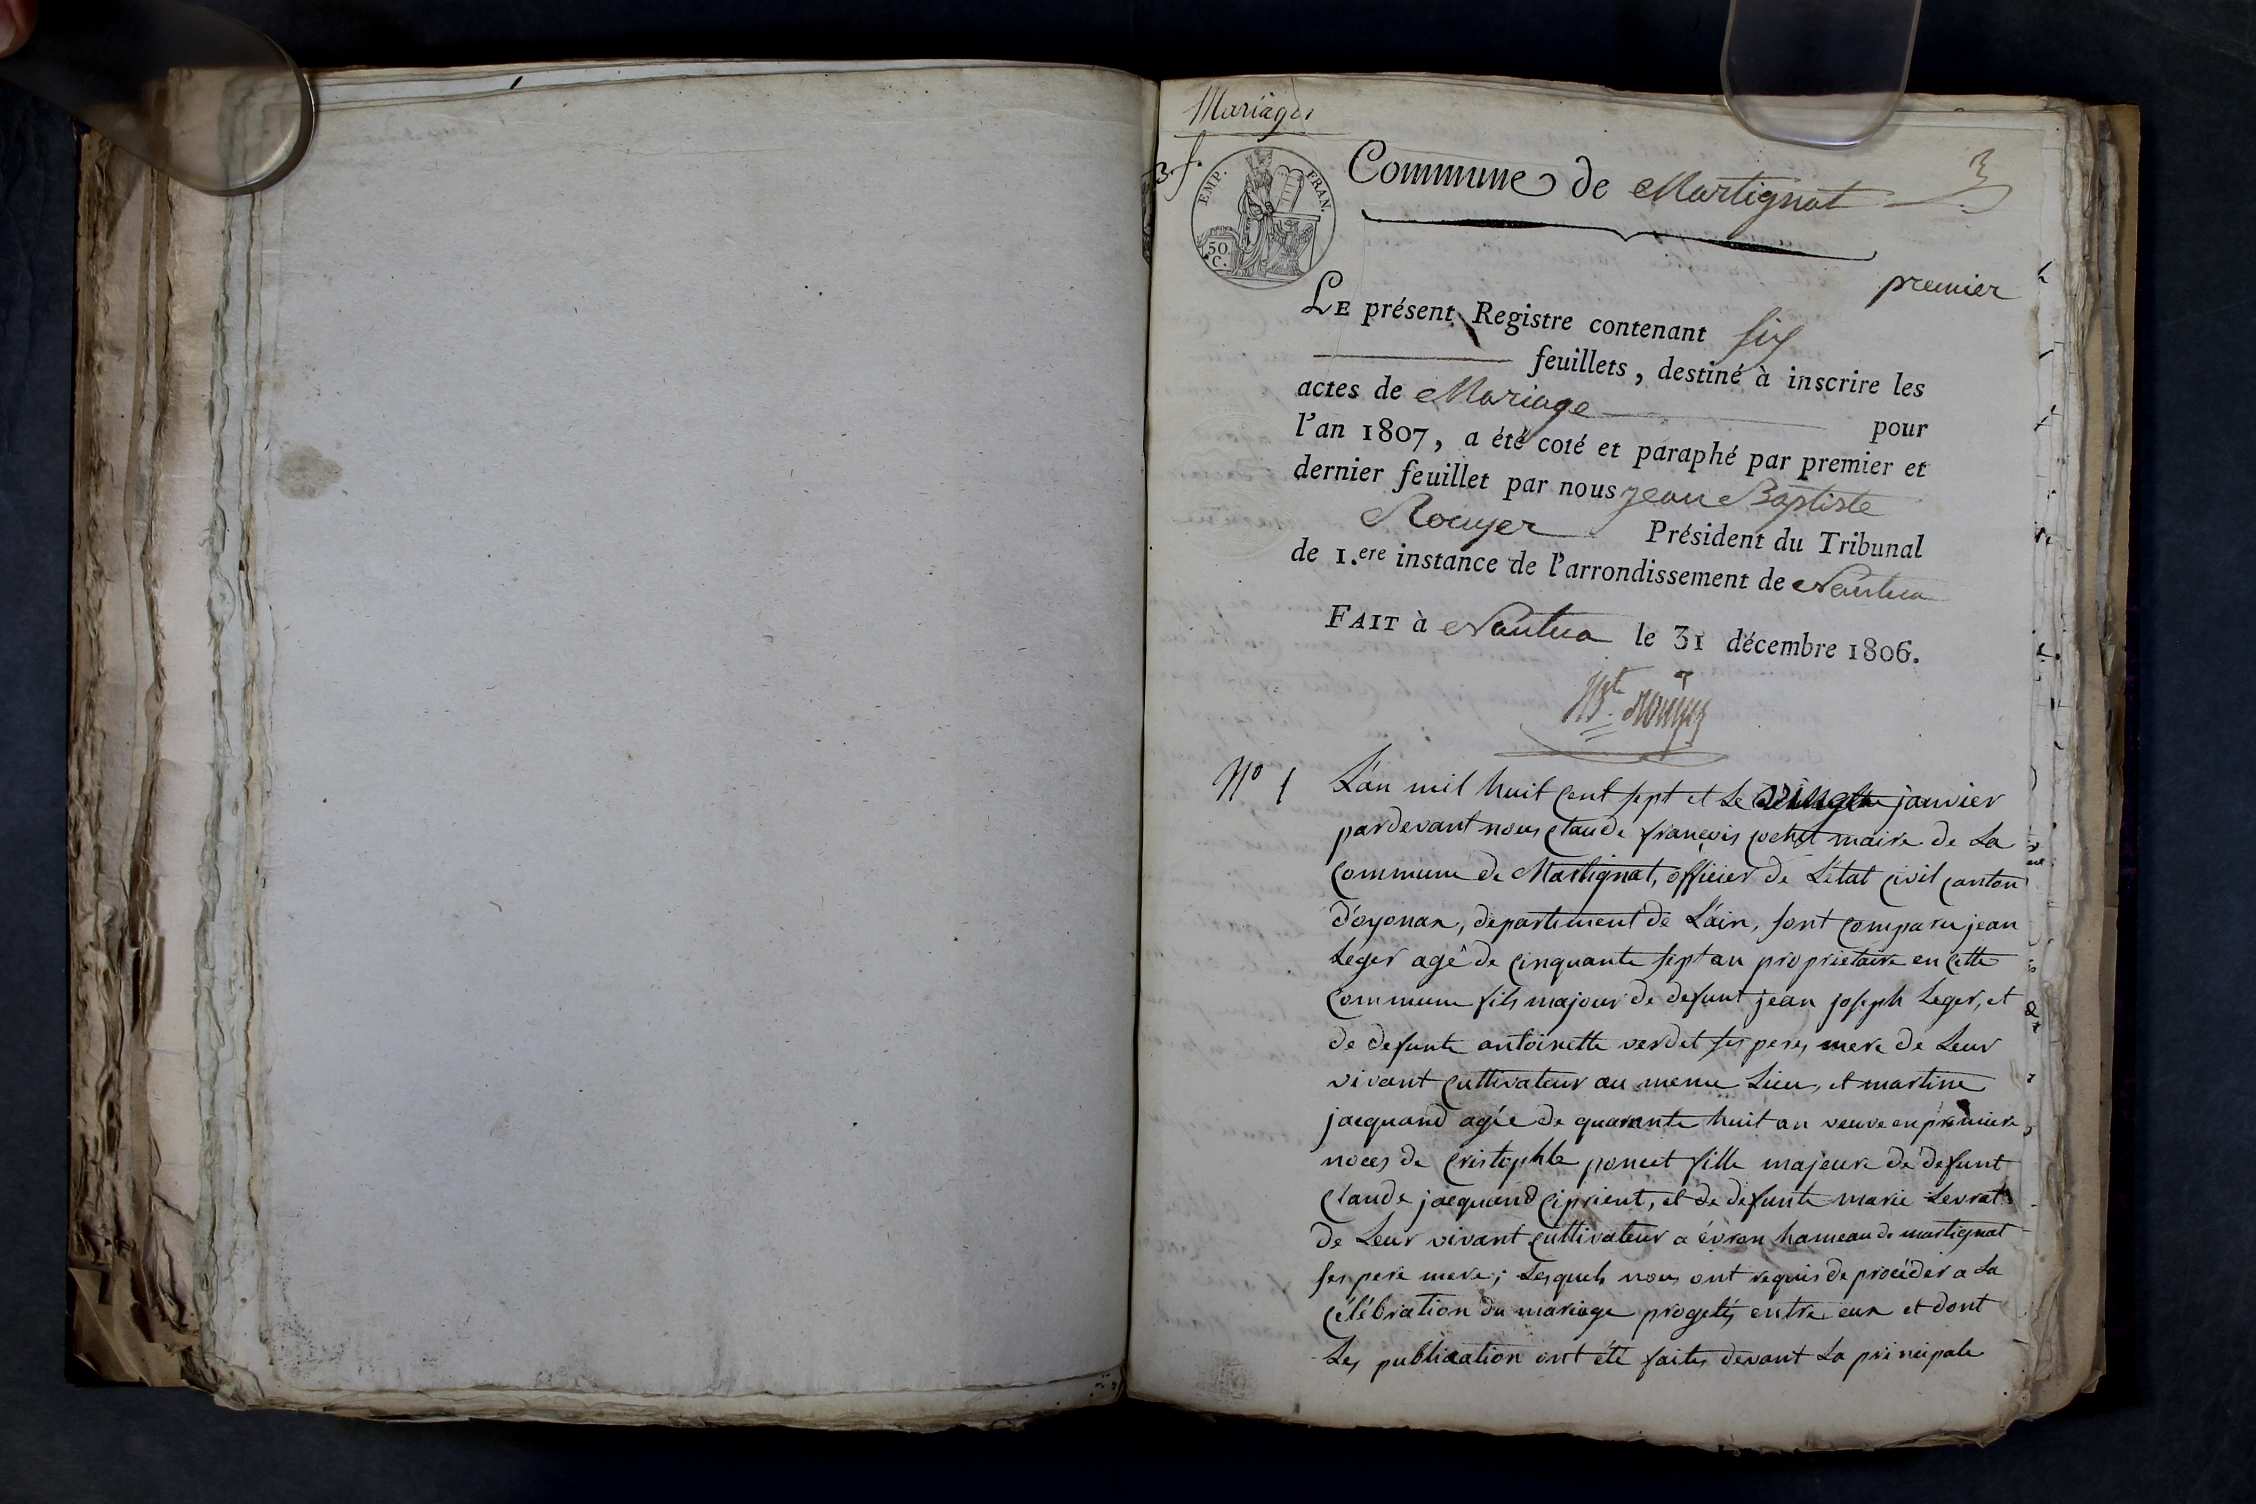 Mariages
3 f.
EMP. FRAN.
50 C.
Commune de Martignat
3
premier
LE présent Registre contenant six
feuillets, destiné à inscrire les
actes de Mariage pour
l'an 1807, a été coté et paraphé par premier et
dernier feuillet par nous jean Baptiste
Rouyer Président du Tribunal
de 1.ere instance de l'arrondissement de Nantua
FAIT à Nantua le 31 décembre 1806.
JBte Rouyer
No 1
L'an mil huit cent sept et le vingt janvier
pardevant nous claude françois cochet maire de La
commune de Martignat, officier de L'état civil canton
d'oyonax, departement de L'ain, sont comparu jean
Leger agé de cinquante sept an proprietaire en cette
commune fils majeur de defunt jean joseph Leger, et
de defunte antoinette verdet ses pere, mere de Leur
vivant cultivateur au meme Lieu, et martine
jacquand agée de quarante huit an veuve en premiere
noces de cristophle poncet fille majeure de defunt
claude jacquand ciprient, et de defunte marie Levrat
de Leur vivant cultivateur a évron hameau de martignat
ses pere mere; Lesquels nous ont requis de procéder a La
célébration du mariage progetés entre eux et dont
Les publication ont été faites devant La principale